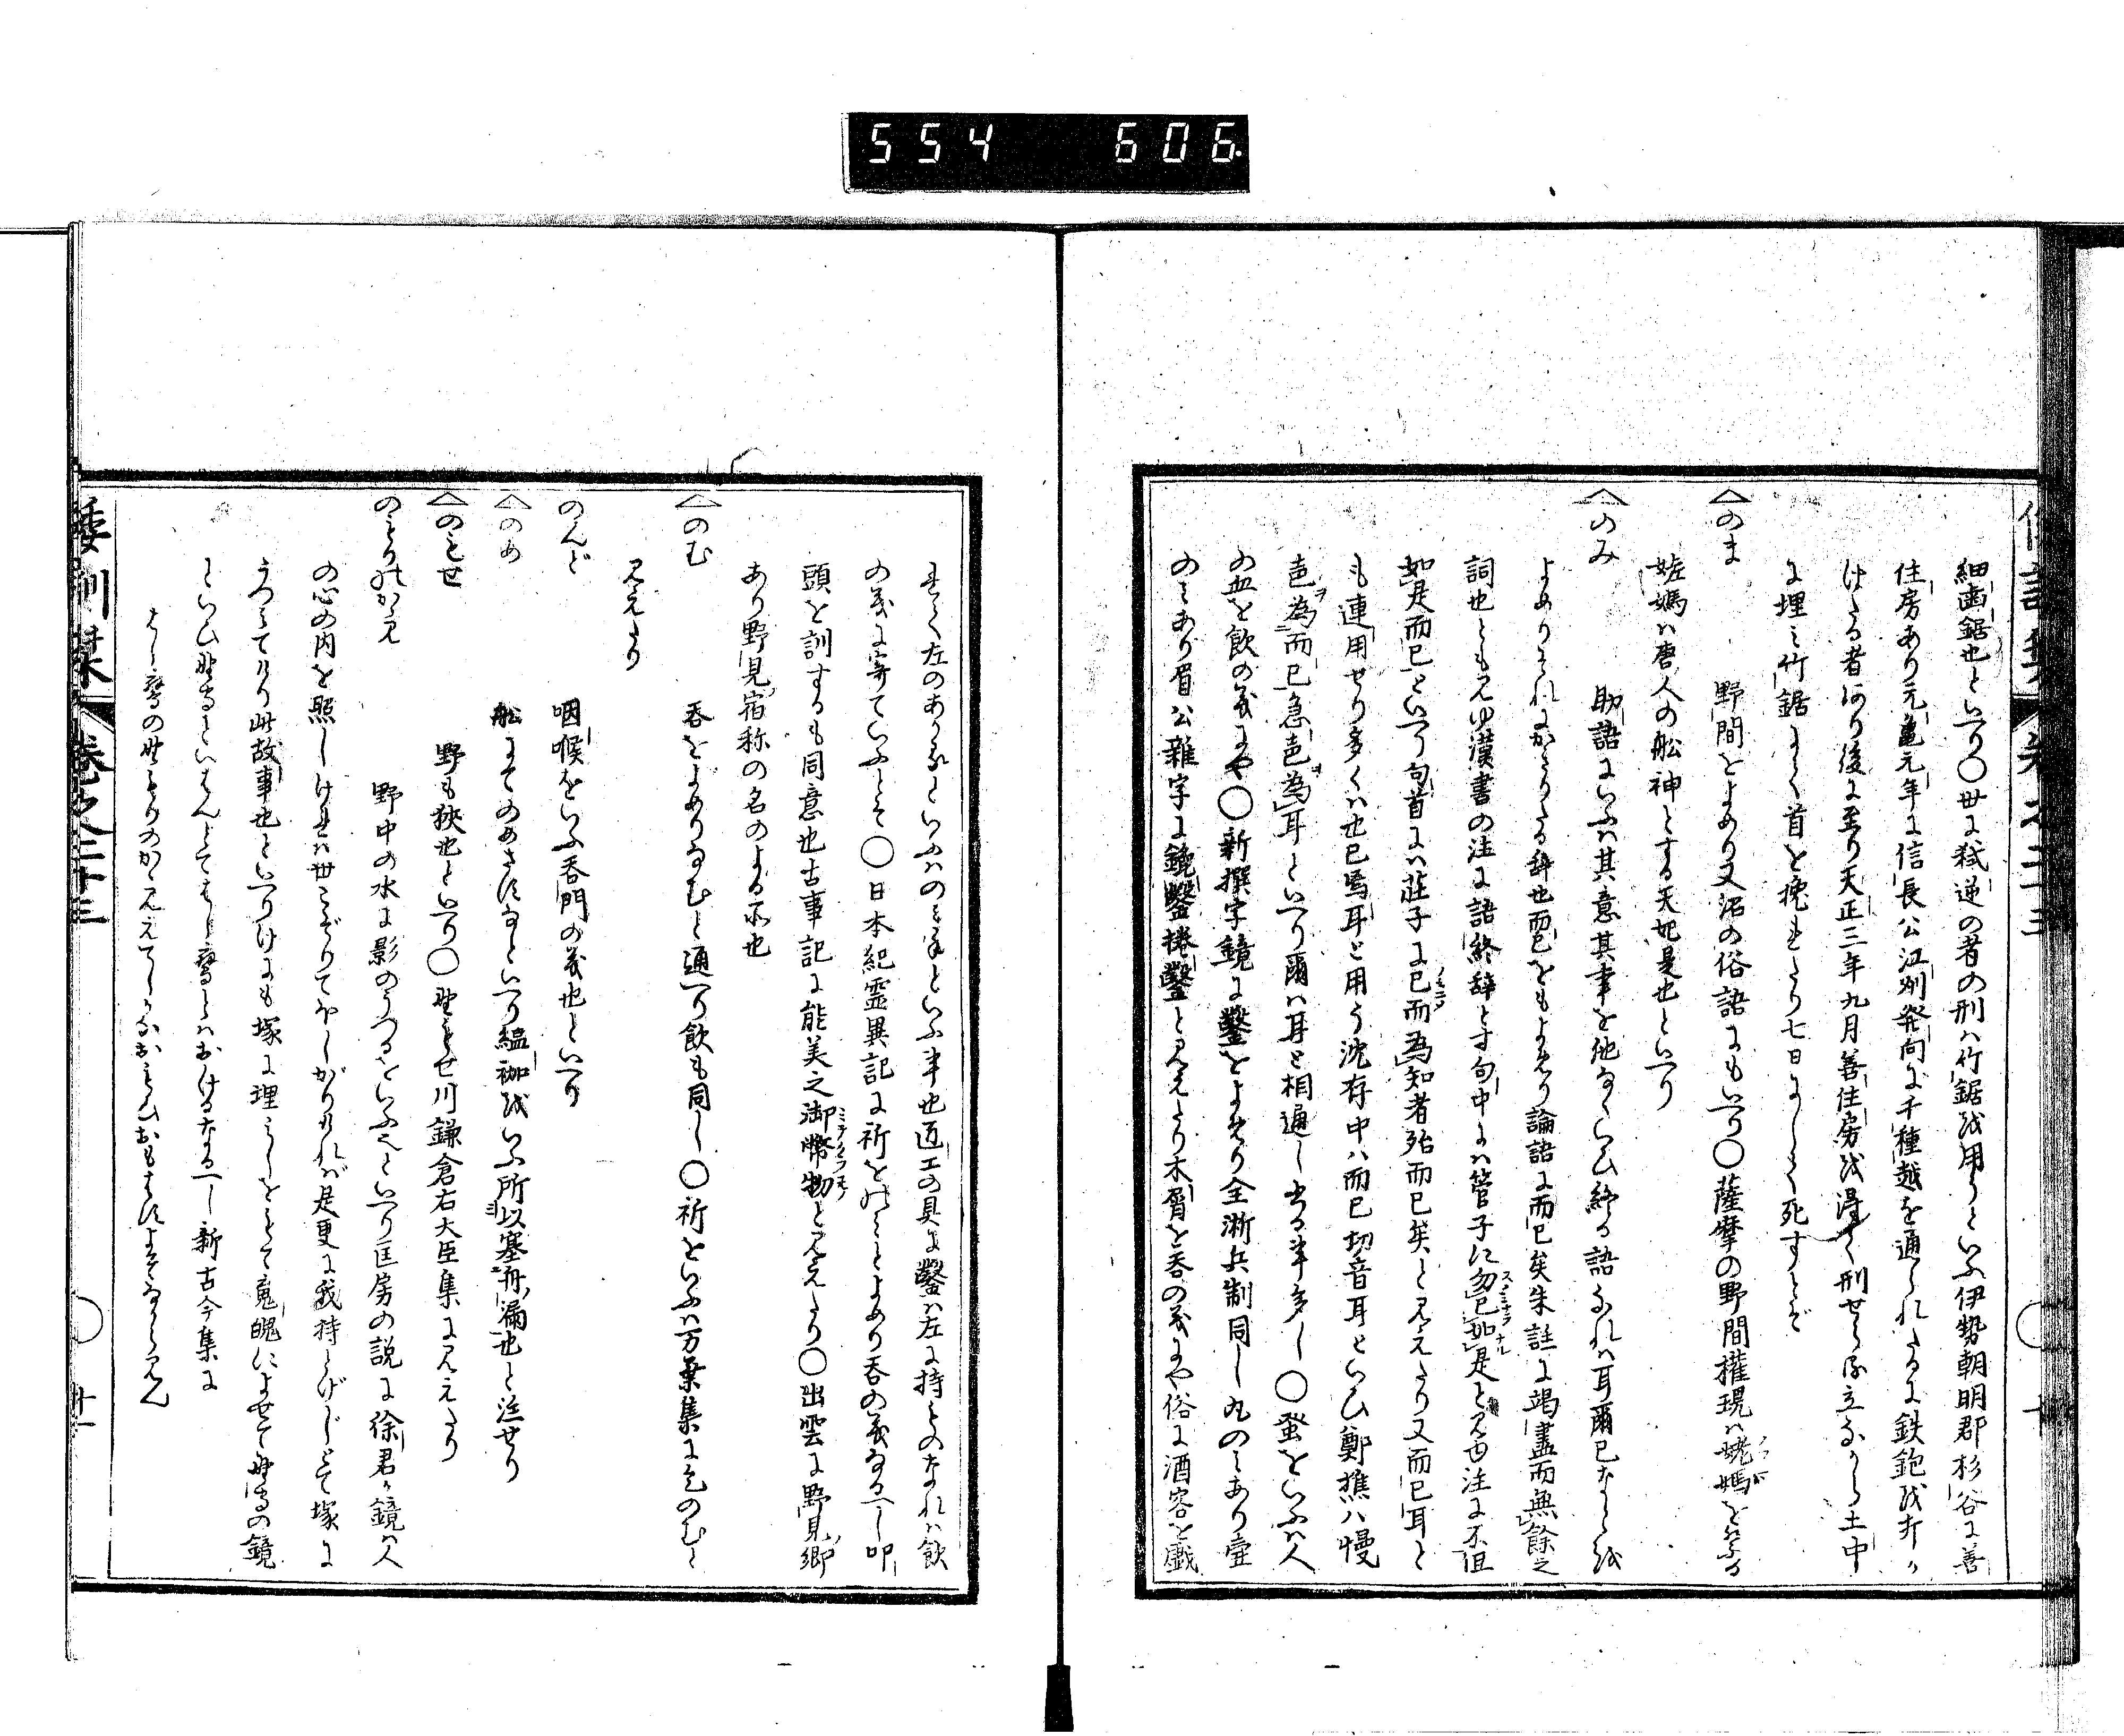 554 606
細歯鋸也といへり○世に弑逆の者の刑ハ竹鋸を用うといふ伊勢朝明郡杉谷に善
住房あり元亀元年に信長公江州発向に千種越を通られたるに鉄炮を打か
けたる者あり後に至り天正三年九月善住房を得て刑せらる立ながら土中
に埋ミ竹鋸にて首を挽せたり七日にして死すとぞ
のま 野間をよめり又沼の俗語にもいへり○薩摩の野間権現ハ娘媽を祭る
媽ハ唐人の舩神とする天妃是也といへり
のみ 助語にいふハ其意其事を他ならひ終る語なれハ耳爾已なとを
よめりそれにかきりたる辞也而已をもよめり論語に而已矣朱註に竭盡而無餘之
詞也ともミゆ漢書の注に語終辞とす句中にハ管子に勿已如是とミゆ注に不但
如是而已といへり句首にハ荘子に已而為知者殆而已矣とミえたり又而已耳と
も連用せり多くハ也已焉耳と用う沈存中ハ而已切音耳といひ鄭樵ハ慢
邑為而已急邑為耳といへり爾ハ耳と相通し當る事多し○蚤をいふハ人
の血を飲の義にや○新撰字鏡に鑿をよめり全浙兵制同し丸のミあり壷
のミあり眉公雑字に鐫鑿捲鑿とミえたり木屑を呑の義にや俗に酒客を戯
て左のありといふハのミ手といふ事也匠工の具に鑿ハ左に持ものなれハ飲
の義に寄ていふとそ○日本紀霊異記に祈をのミとよめり呑の義なるへし叩
頭を訓するも同意也古事記に能美之御幣物とミえたり○出雲に野見郷
あり野見宿祢の名のよる所也
のむ 呑をよめりなむと通へり飲も同し○祈をいふハ万葉集にこひのむと
ミえたり
のんど 咽喉をいふ呑門の義也といへり
のめ 舩にてのめさすなといへり縕袽をいふ所以塞舟漏也と注せり
のもせ 野も狭也といへり○野もせ川鎌倉右大臣集にミえたり
のもりのかゝみ 野中の水に影のうつるをいふといへり匡房の説に徐君か鏡ハ人
の心の内を照しけれハ世こぞりてほしがりけれバ是更に我持とげじとて塚に
うつミてけり此故事也といへりけにも塚に埋ミしをもて鬼魄によせて野守の鏡
といひ野守といはんとてはし鷹とハおけるなるへし新古今集に
はし鷹の野もりのかゝみえてしかなおもひおもはすよそなからみん
倭訓栞 巻之二十三